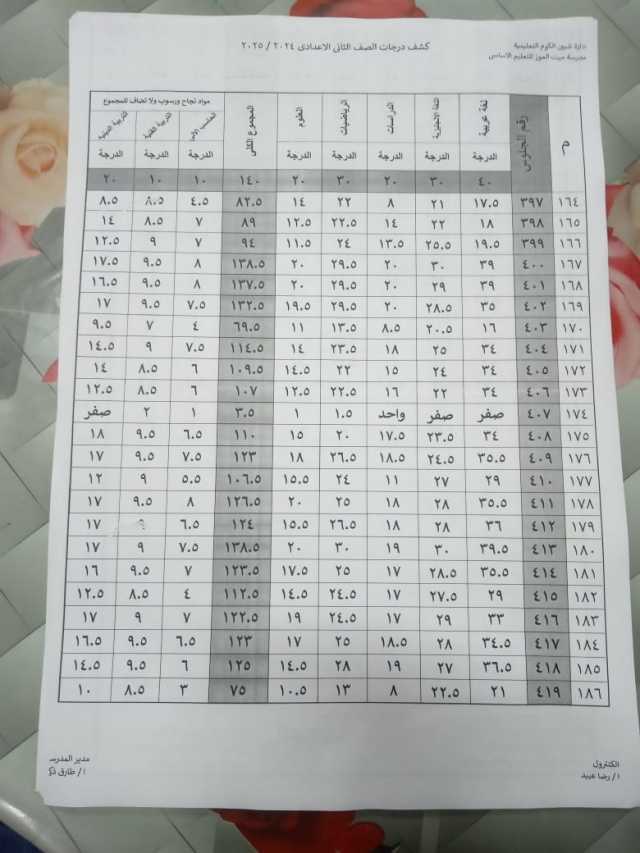 إدارة شبين الكوم التعليمية
مدرسة ميت الموز للتعليم الاساسى
كشف درجات الصف الثانى الاعدادى ٢٠٢٤ / ٢٠٢٥
م رقم الجلوس لغة عربية اللغة الانجليزية الدراسات الرياضيات العلوم المجموع الكلى مواد نجاح ورسوب ولا تضاف للمجموع
الحاسب الآلى التربية الفنية التربية الدينية
الدرجة الدرجة الدرجة الدرجة الدرجة الدرجة الدرجة الدرجة
٤٠ ٣٠ ٢٠ ٣٠ ٢٠ ١٤٠ ١٠ ١٠ ٢٠
١٦٤ ٣٩٧ ١٧.٥ ٢١ ٨ ٢٢ ١٤ ٨٢.٥ ٤.٥ ٨.٥ ٨.٥
١٦٥ ٣٩٨ ١٨ ٢٢ ١٤ ٢٢.٥ ١٢.٥ ٨٩ ٧ ٨.٥ ١٤
١٦٦ ٣٩٩ ١٩.٥ ٢٥.٥ ١٣.٥ ٢٤ ١١.٥ ٩٤ ٧ ٩ ١٢.٥
١٦٧ ٤٠٠ ٣٩ ٣٠ ٢٠ ٢٩.٥ ٢٠ ١٣٨.٥ ٨ ٩.٥ ١٧.٥
١٦٨ ٤٠١ ٣٩ ٢٩ ٢٠ ٢٩.٥ ٢٠ ١٣٧.٥ ٨ ٩.٥ ١٦.٥
١٦٩ ٤٠٢ ٣٥ ٢٨.٥ ٢٠ ٢٩.٥ ١٩.٥ ١٣٢.٥ ٧.٥ ٩.٥ ١٧
١٧٠ ٤٠٣ ١٦ ٢٠.٥ ٨.٥ ١٣.٥ ١١ ٦٩.٥ ٤ ٧ ٩.٥
١٧١ ٤٠٤ ٣٤ ٢٥ ١٨ ٢٣.٥ ١٤ ١١٤.٥ ٧.٥ ٩ ١٤.٥
١٧٢ ٤٠٥ ٣٤ ٢٤ ١٥ ٢٢ ١٤.٥ ١٠٩.٥ ٦ ٨.٥ ١٤
١٧٣ ٤٠٦ ٣٤ ٢٢ ١٦ ٢٢.٥ ١٢.٥ ١٠٧ ٦ ٨.٥ ١٢.٥
١٧٤ ٤٠٧ صفر صفر واحد ١.٥ ١ ٣.٥ ١ ٢ صفر
١٧٥ ٤٠٨ ٣٤ ٢٣.٥ ١٧.٥ ٢٠ ١٥ ١١٠ ٦.٥ ٩.٥ ١٨
١٧٦ ٤٠٩ ٣٥.٥ ٢٤.٥ ١٨.٥ ٢٦.٥ ١٨ ١٢٣ ٧.٥ ٩.٥ ١٧
١٧٧ ٤١٠ ٢٩ ٢٧ ١١ ٢٤ ١٥.٥ ١٠٦.٥ ٥.٥ ٩ ١٢
١٧٨ ٤١١ ٣٥.٥ ٢٨ ١٨ ٢٥ ٢٠ ١٢٦.٥ ٨ ٩.٥ ١٧
١٧٩ ٤١٢ ٣٦ ٢٨ ١٨ ٢٦.٥ ١٥.٥ ١٢٤ ٦.٥ ٩ ١٧
١٨٠ ٤١٣ ٣٩.٥ ٣٠ ١٩ ٣٠ ٢٠ ١٣٨.٥ ٧.٥ ٩ ١٧
١٨١ ٤١٤ ٣٥.٥ ٢٨.٥ ١٧ ٢٥ ١٧.٥ ١٢٣.٥ ٧ ٩.٥ ١٦
١٨٢ ٤١٥ ٢٩ ٢٧.٥ ١٧ ٢٤.٥ ١٤.٥ ١١٢.٥ ٤ ٨.٥ ١٢.٥
١٨٣ ٤١٦ ٣٣ ٢٩ ١٧ ٢٤.٥ ١٩ ١٢٢.٥ ٧ ٩ ١٧
١٨٤ ٤١٧ ٣٤.٥ ٢٨ ١٨.٥ ٢٥ ١٧ ١٢٣ ٦.٥ ٩.٥ ١٦.٥
١٨٥ ٤١٨ ٣٦.٥ ٢٧ ١٩ ٢٨ ١٤.٥ ١٢٥ ٦ ٩.٥ ١٤.٥
١٨٦ ٤١٩ ٢١ ٢٢.٥ ٨ ١٣ ١٠.٥ ٧٥ ٣ ٨.٥ ١٠
الكنترول
ا/ رضا عبيد
مدير المدرسة
ا/ طارق